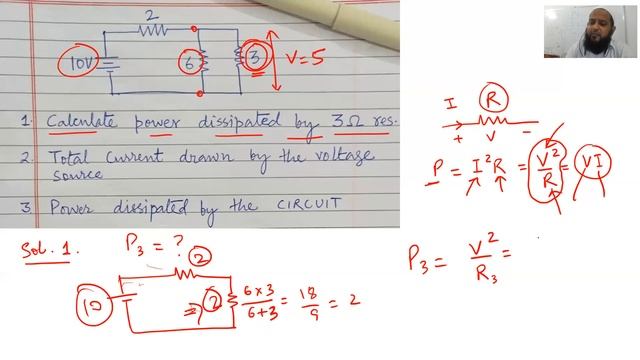 2
10V
6
3
V=5
1. Calculate power dissipated by 3Ω res.
2. Total current drawn by the voltage
source
3. Power dissipated by the CIRCUIT
I
R
+ V -
P = I²R = V²/R = VI
Sol. 1.
P₃ = ?
2
10
2
6×3/6+3 = 18/9 = 2
P₃ = V²/R₃ =